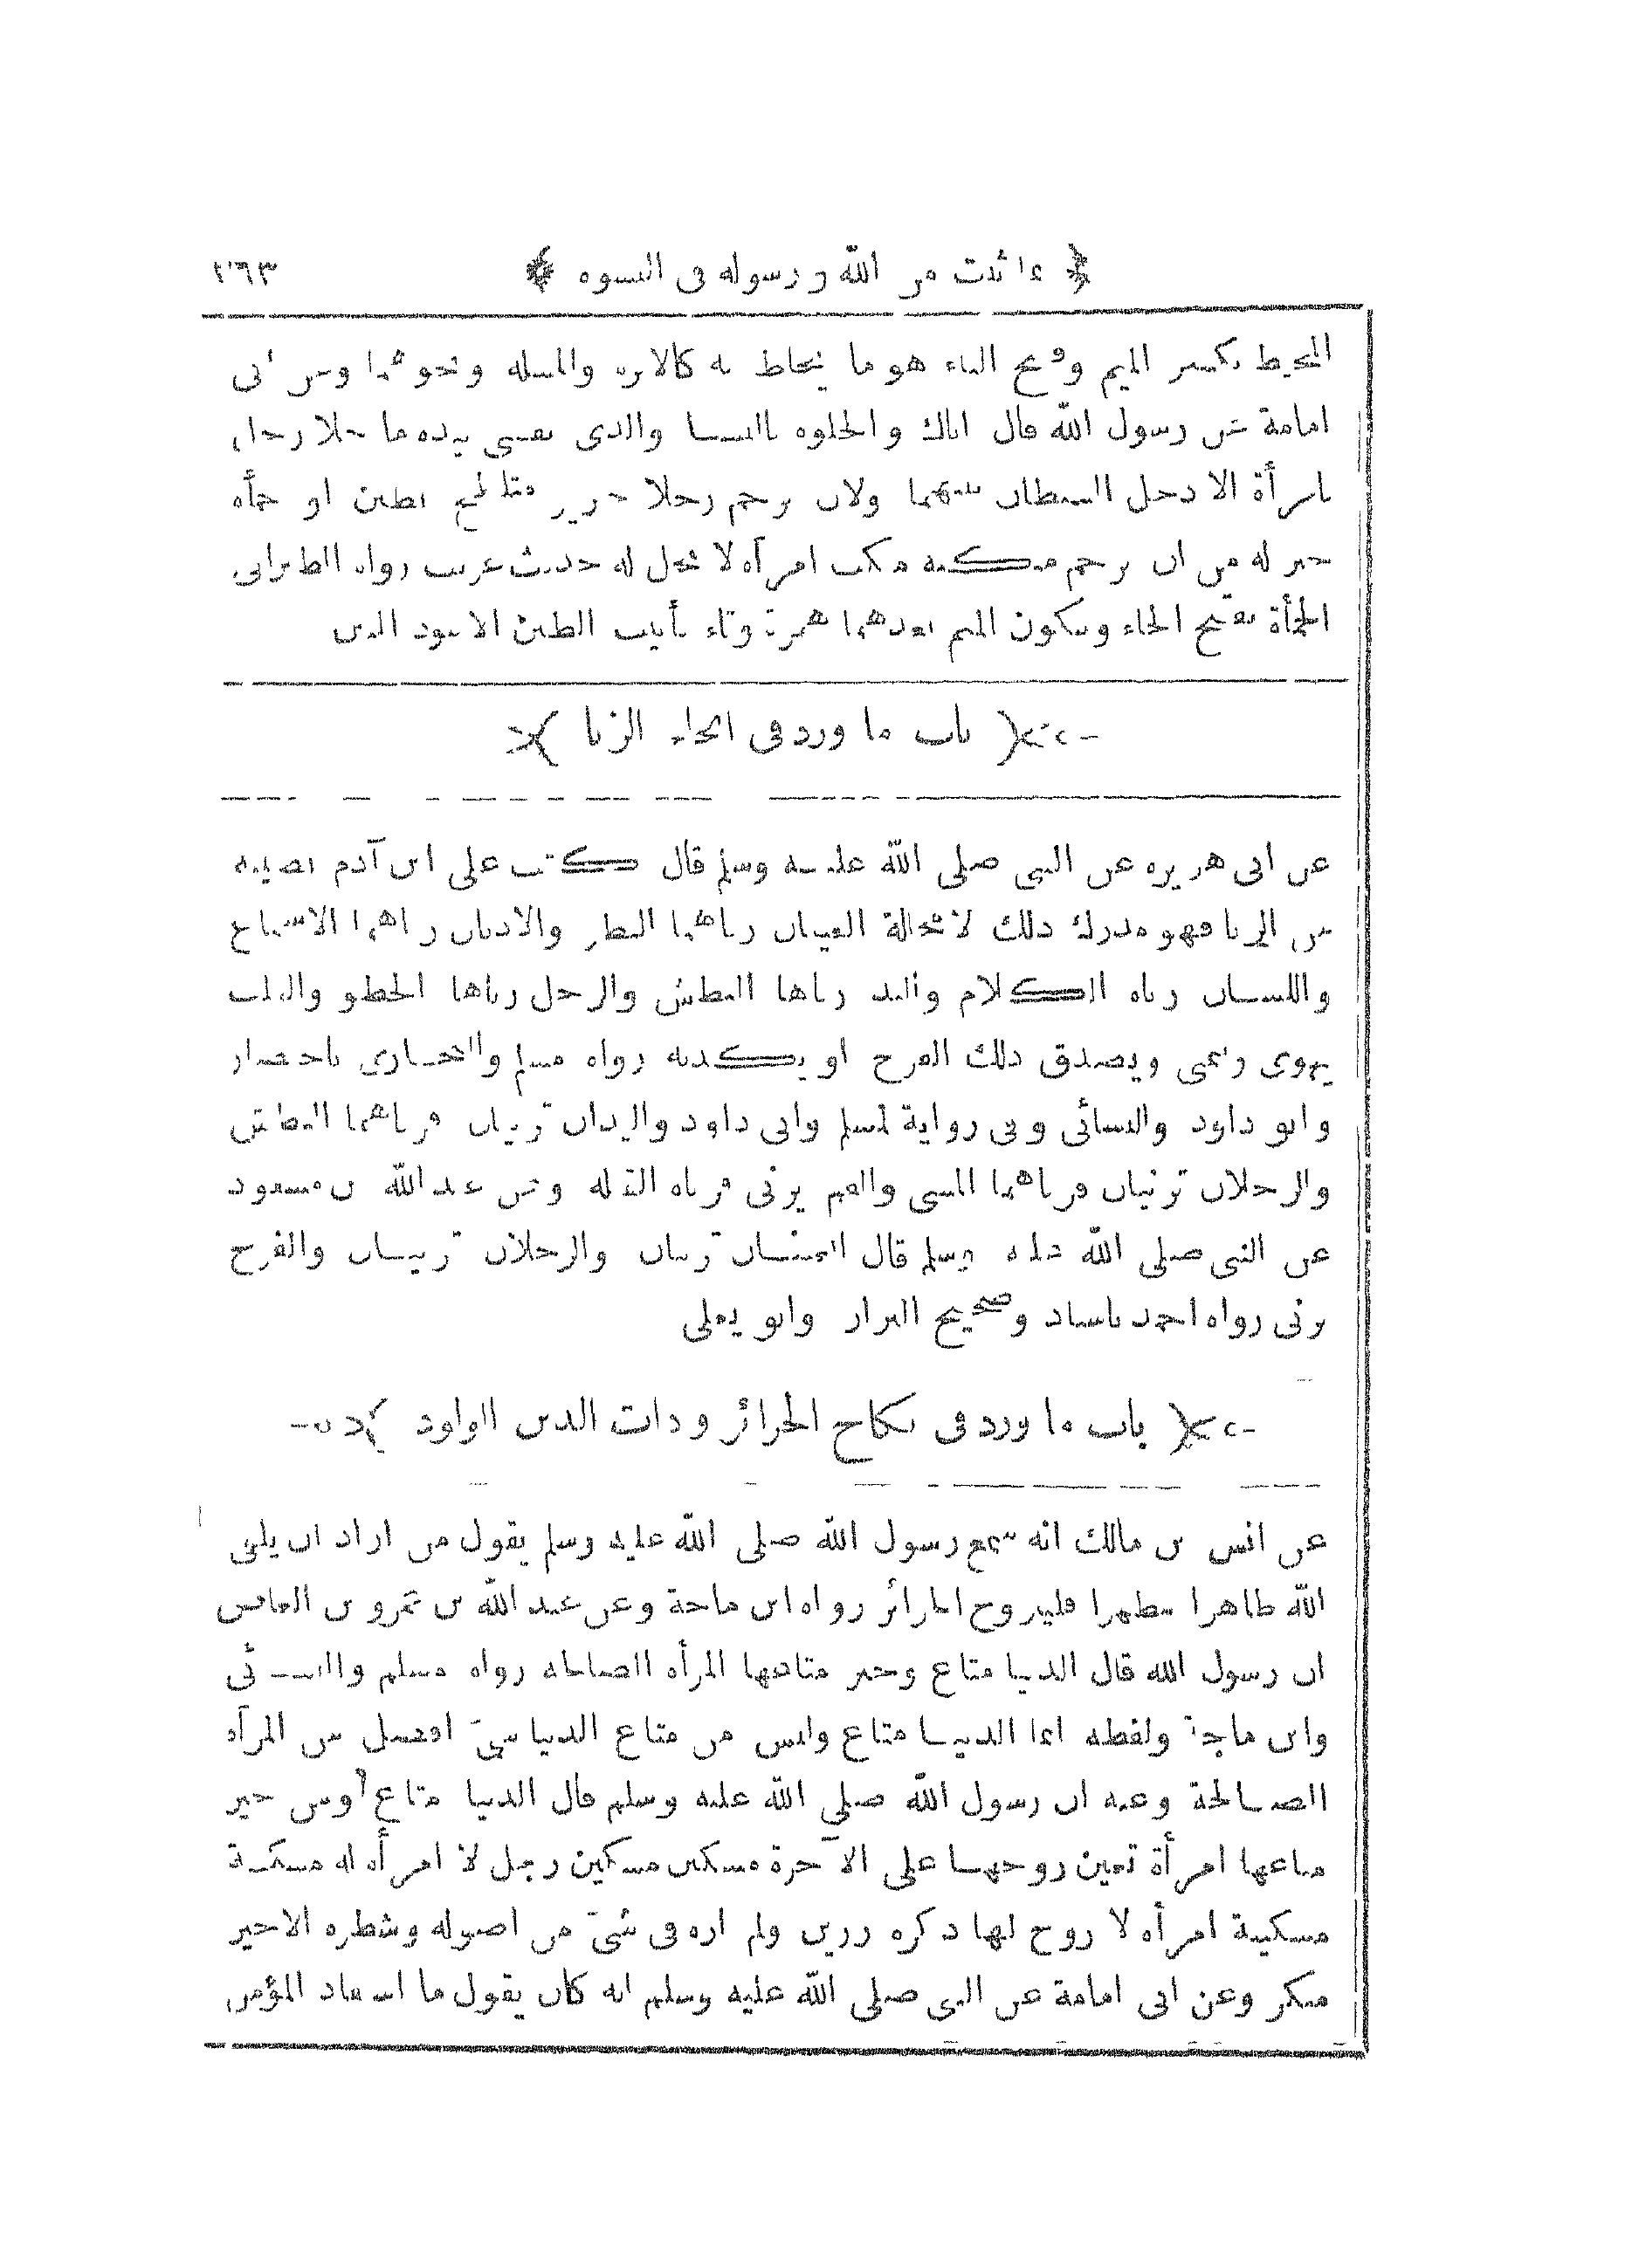 ﴿ ما ثبت من الله ورسوله في النسوة ﴾ ٢٦٣
المخيط بكسر الميم وفتح الياء هو ما يخاط به كالابرة والمسلة ونحوهما وعن أبي
امامة عن رسول الله قال اياك والخلوة بالنسا والذي نفسي بيده ما خلا رجل
بامرأة الا دخل الشيطان بينهما ولان يزحم رجلا خنزير متلطخ بطين او حمأة
خير له من ان يزحم منكبه منكب امرأة لا تحل له حديث غريب رواه الطبراني
الحمأة بفتح الحاء وسكون الميم بعدهما همزة وتاء تأنيث الطين الاسود المنتن
﴿ باب ما ورد في انحاء الزنا ﴾
عن ابي هريرة عن النبي صلى الله عليه وسلم قال كتب على ابن آدم نصيبه
من الزنا فهو مدرك ذلك لا محالة العينان زناهما النظر والاذنان زناهما الاستماع
واللسان زناه الكلام واليد زناها البطش والرجل زناها الخطو والقلب
يهوى ويتمنى ويصدق ذلك الفرج او يكذبه رواه مسلم والبخاري باختصار
وابو داود والنسائي وفي رواية لمسلم وابي داود واليدان تزنيان فزناهما البطش
والرجلان تزنيان فزناهما المشي والفم يزني فزناه القبلة وعن عبد الله بن مسعود
عن النبي صلى الله عليه وسلم قال العينان تزنيان والرجلان تزنيان والفرج
يزني رواه احمد باسناد صحيح والبزار وابو يعلى
﴿ باب ما ورد في نكاح الحرائر وذات الدين الولود ﴾
عن انس بن مالك انه سمع رسول الله صلى الله عليه وسلم يقول من اراد ان يلقى
الله طاهرا مطهرا فليتزوج الحرائر رواه ابن ماجة وعن عبد الله بن عمرو بن العاص
ان رسول الله قال الدنيا متاع وخير متاعها المرأة الصالحة رواه مسلم والنسائي
وابن ماجة ولفظه انما الدنيا متاع وليس من متاع الدنيا شئ افضل من المرأة
الصالحة وعنه ان رسول الله صلى الله عليه وسلم قال الدنيا متاع ومن خير
متاعها امرأة تعين زوجها على الآخرة مسكين مسكين رجل لا امرأة له مسكينة
مسكينة امرأة لا زوج لها ذكره رزين ولم اره في شئ من اصوله وشطره الاخير
منكر وعن ابي امامة عن النبي صلى الله عليه وسلم انه كان يقول ما استفاد المؤمن